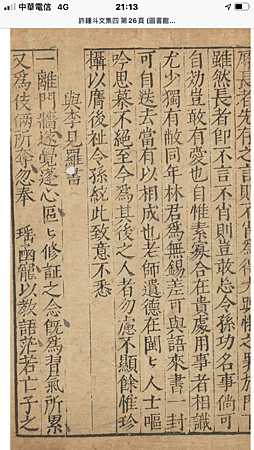 中華電信 4G
21:13
許鍾斗文集四 第26頁 (圖書館...
雖然長者卽不言不肖則豈敢忘令孫功名事倘可
自効豈敢有愛也自惟素寡合在貴處用事者相識
尤少獨有敝同年林君爲無錫差可與語來書一封
可自送去當有以相成也老師遺德在閩〻人士嘔
吟思慕不絕至今爲其後之人者勿慮不顯餘惟珍
攝以膺後祉令孫統此致意不悉
與李見羅書
一離門牆遂覺蓬心區〻修証之念旣爲習氣所累
又爲伎倆所牽忽奉 瑤函寵以教語茫若亡子之